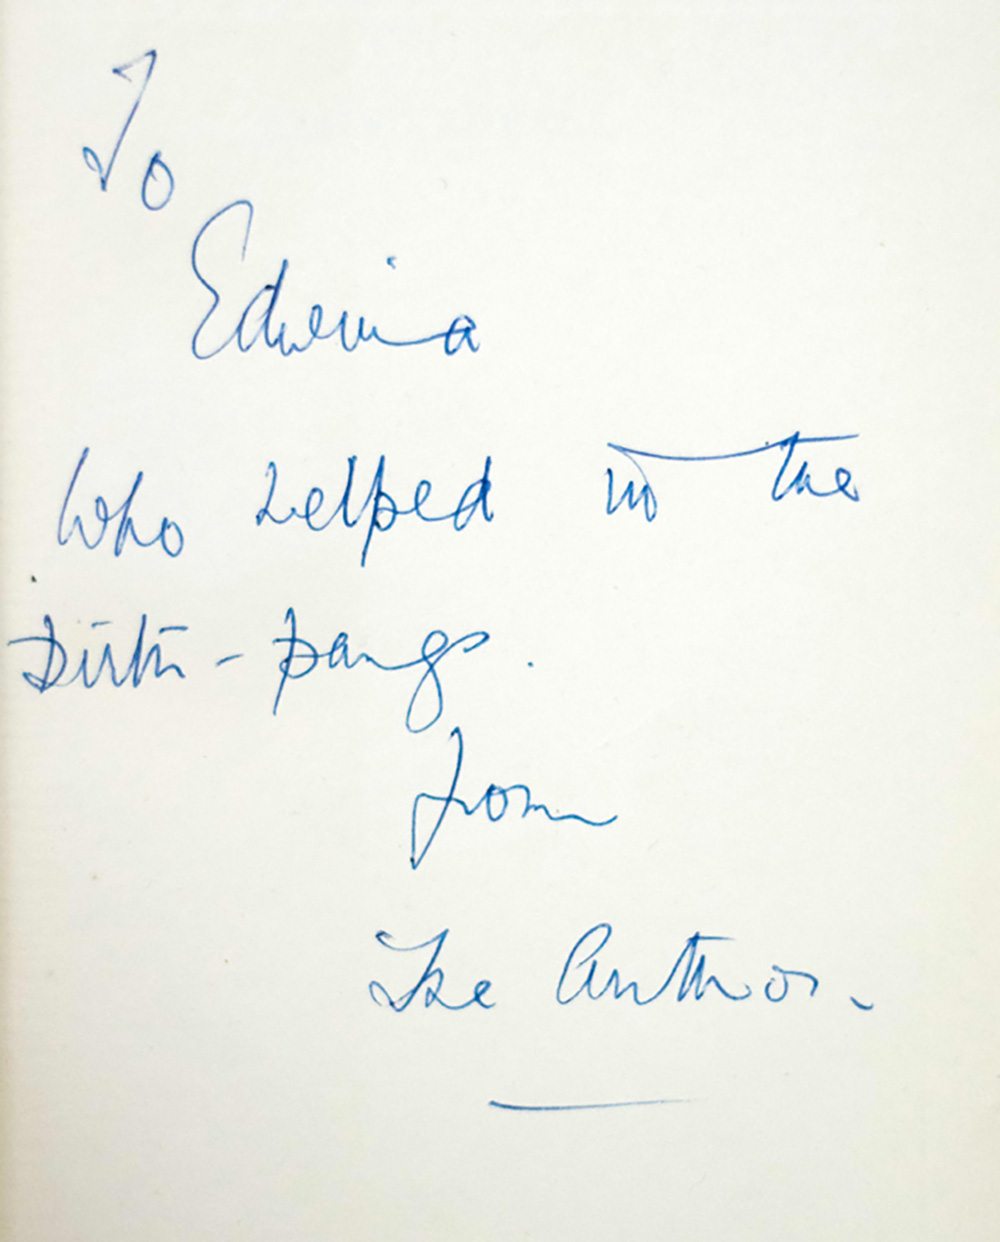 To
Edwina
who helped in the
birth-pangs.
from
The Author.